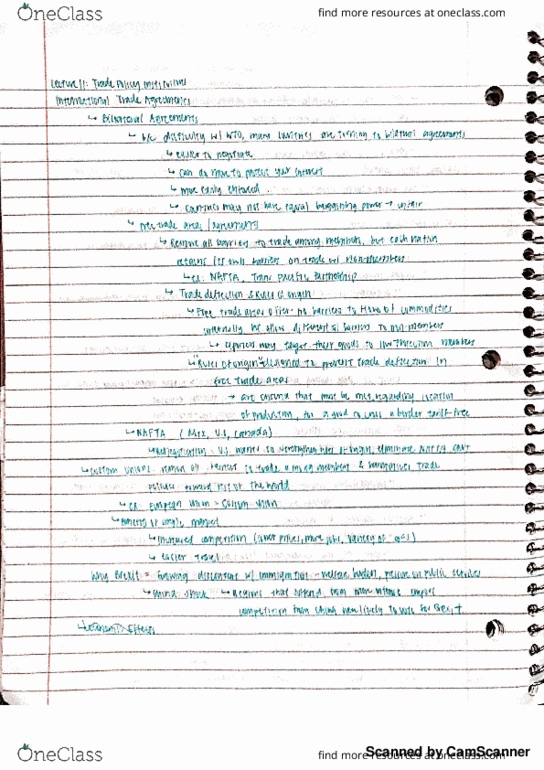 OneClass
find more resources at oneclass.com
Lecture 11: Trade Policy
International Trade Agreements
↳ Bilateral Agreements
↳ b/c difficulty w/ WTO, many countries are turning to bilateral agreements
↳ easier to negotiate
↳ can do more to protect your interest
↳ more easily enforced.
↳ countries may not have equal bargaining power → unfair
↳ free trade areas / agreements
↳ Remove all barriers to trade among members, but each nation
retains its own barriers on trade w/ non-members
↳ ex. NAFTA, Trans Pacific Partnership
↳ Trade deflection & Rules of origin
↳ Free trade areas offer no barriers to flow of commodities
internally but allow differential barriers to non members
↳ exporters may target their goods to low members
↳ "Rules of origin" designed to prevent trade deflection in
free trade areas
→ are criteria that must be met, regarding location
of production, for a good to cross a border tariff-free
↳ NAFTA (Mex, U.S, Canada)
↳ U.S. wanted to rules of origin, eliminate
↳ Custom unions: remove all barriers to trade among members & harmonizes trade
policies toward rest of the world
↳ ex. European Union = Custom Union
↳ Benefits of single market
↳ increased competition (lower prices, more jobs, variety of g&s)
↳ easier travel
Why Brexit = Growing discontent w/ immigration - welfare burden, pressure on public services
↳ China shock ↳ Regions that from more intense import
competition from China more likely to vote for Brexit
↳ Effects
OneClass
find more resources at oneclass.com
Scanned by CamScanner